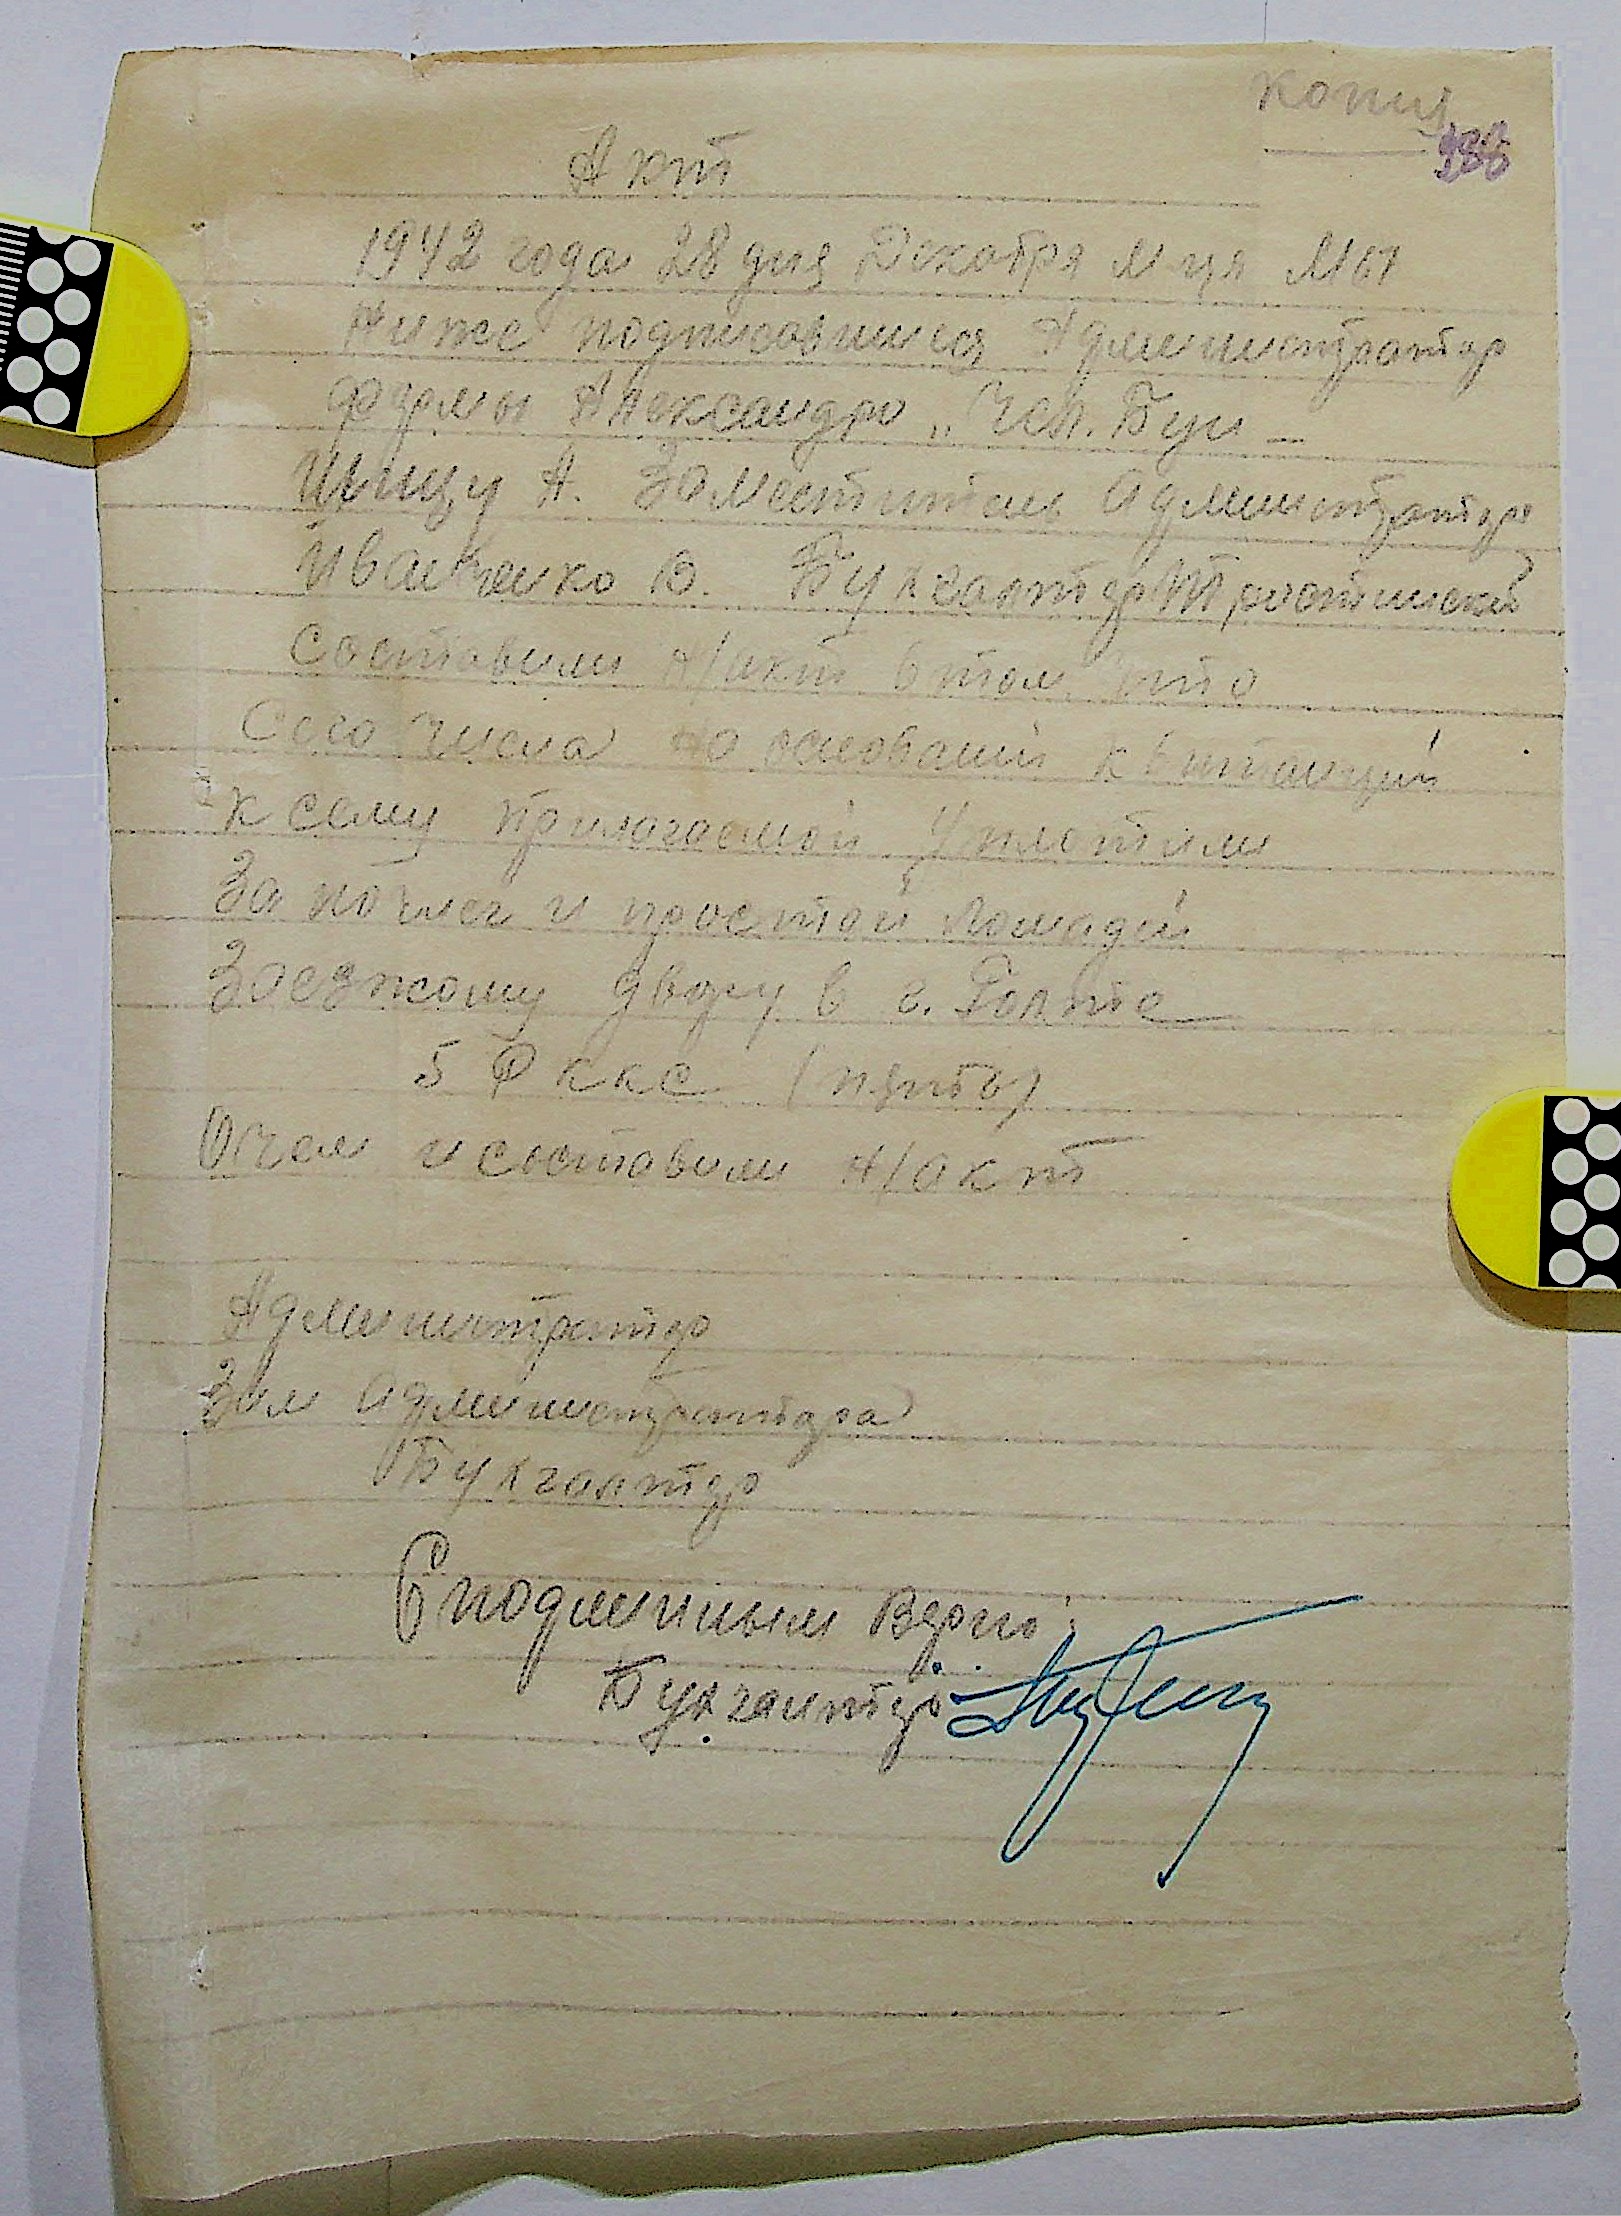 копия
Акт
1942 года 28 дня Декабря м-ця Мы
Ниже подписавшиеся Администратор
фермы Александро
А. Заместитель администратора
Иванченко В. Бухгалтер
составили н/акт в том что
Сего числа на основании квитанции
к сему прилагаемой уплотили
За ночлег и простой лошадей
Заезжому двору в г. Голте
5 Р ККС (пять)
О чем и составили н/акт
Администратор
Зам администратора
Бухгалтер
С подлинным Верно:
Бухгалтер